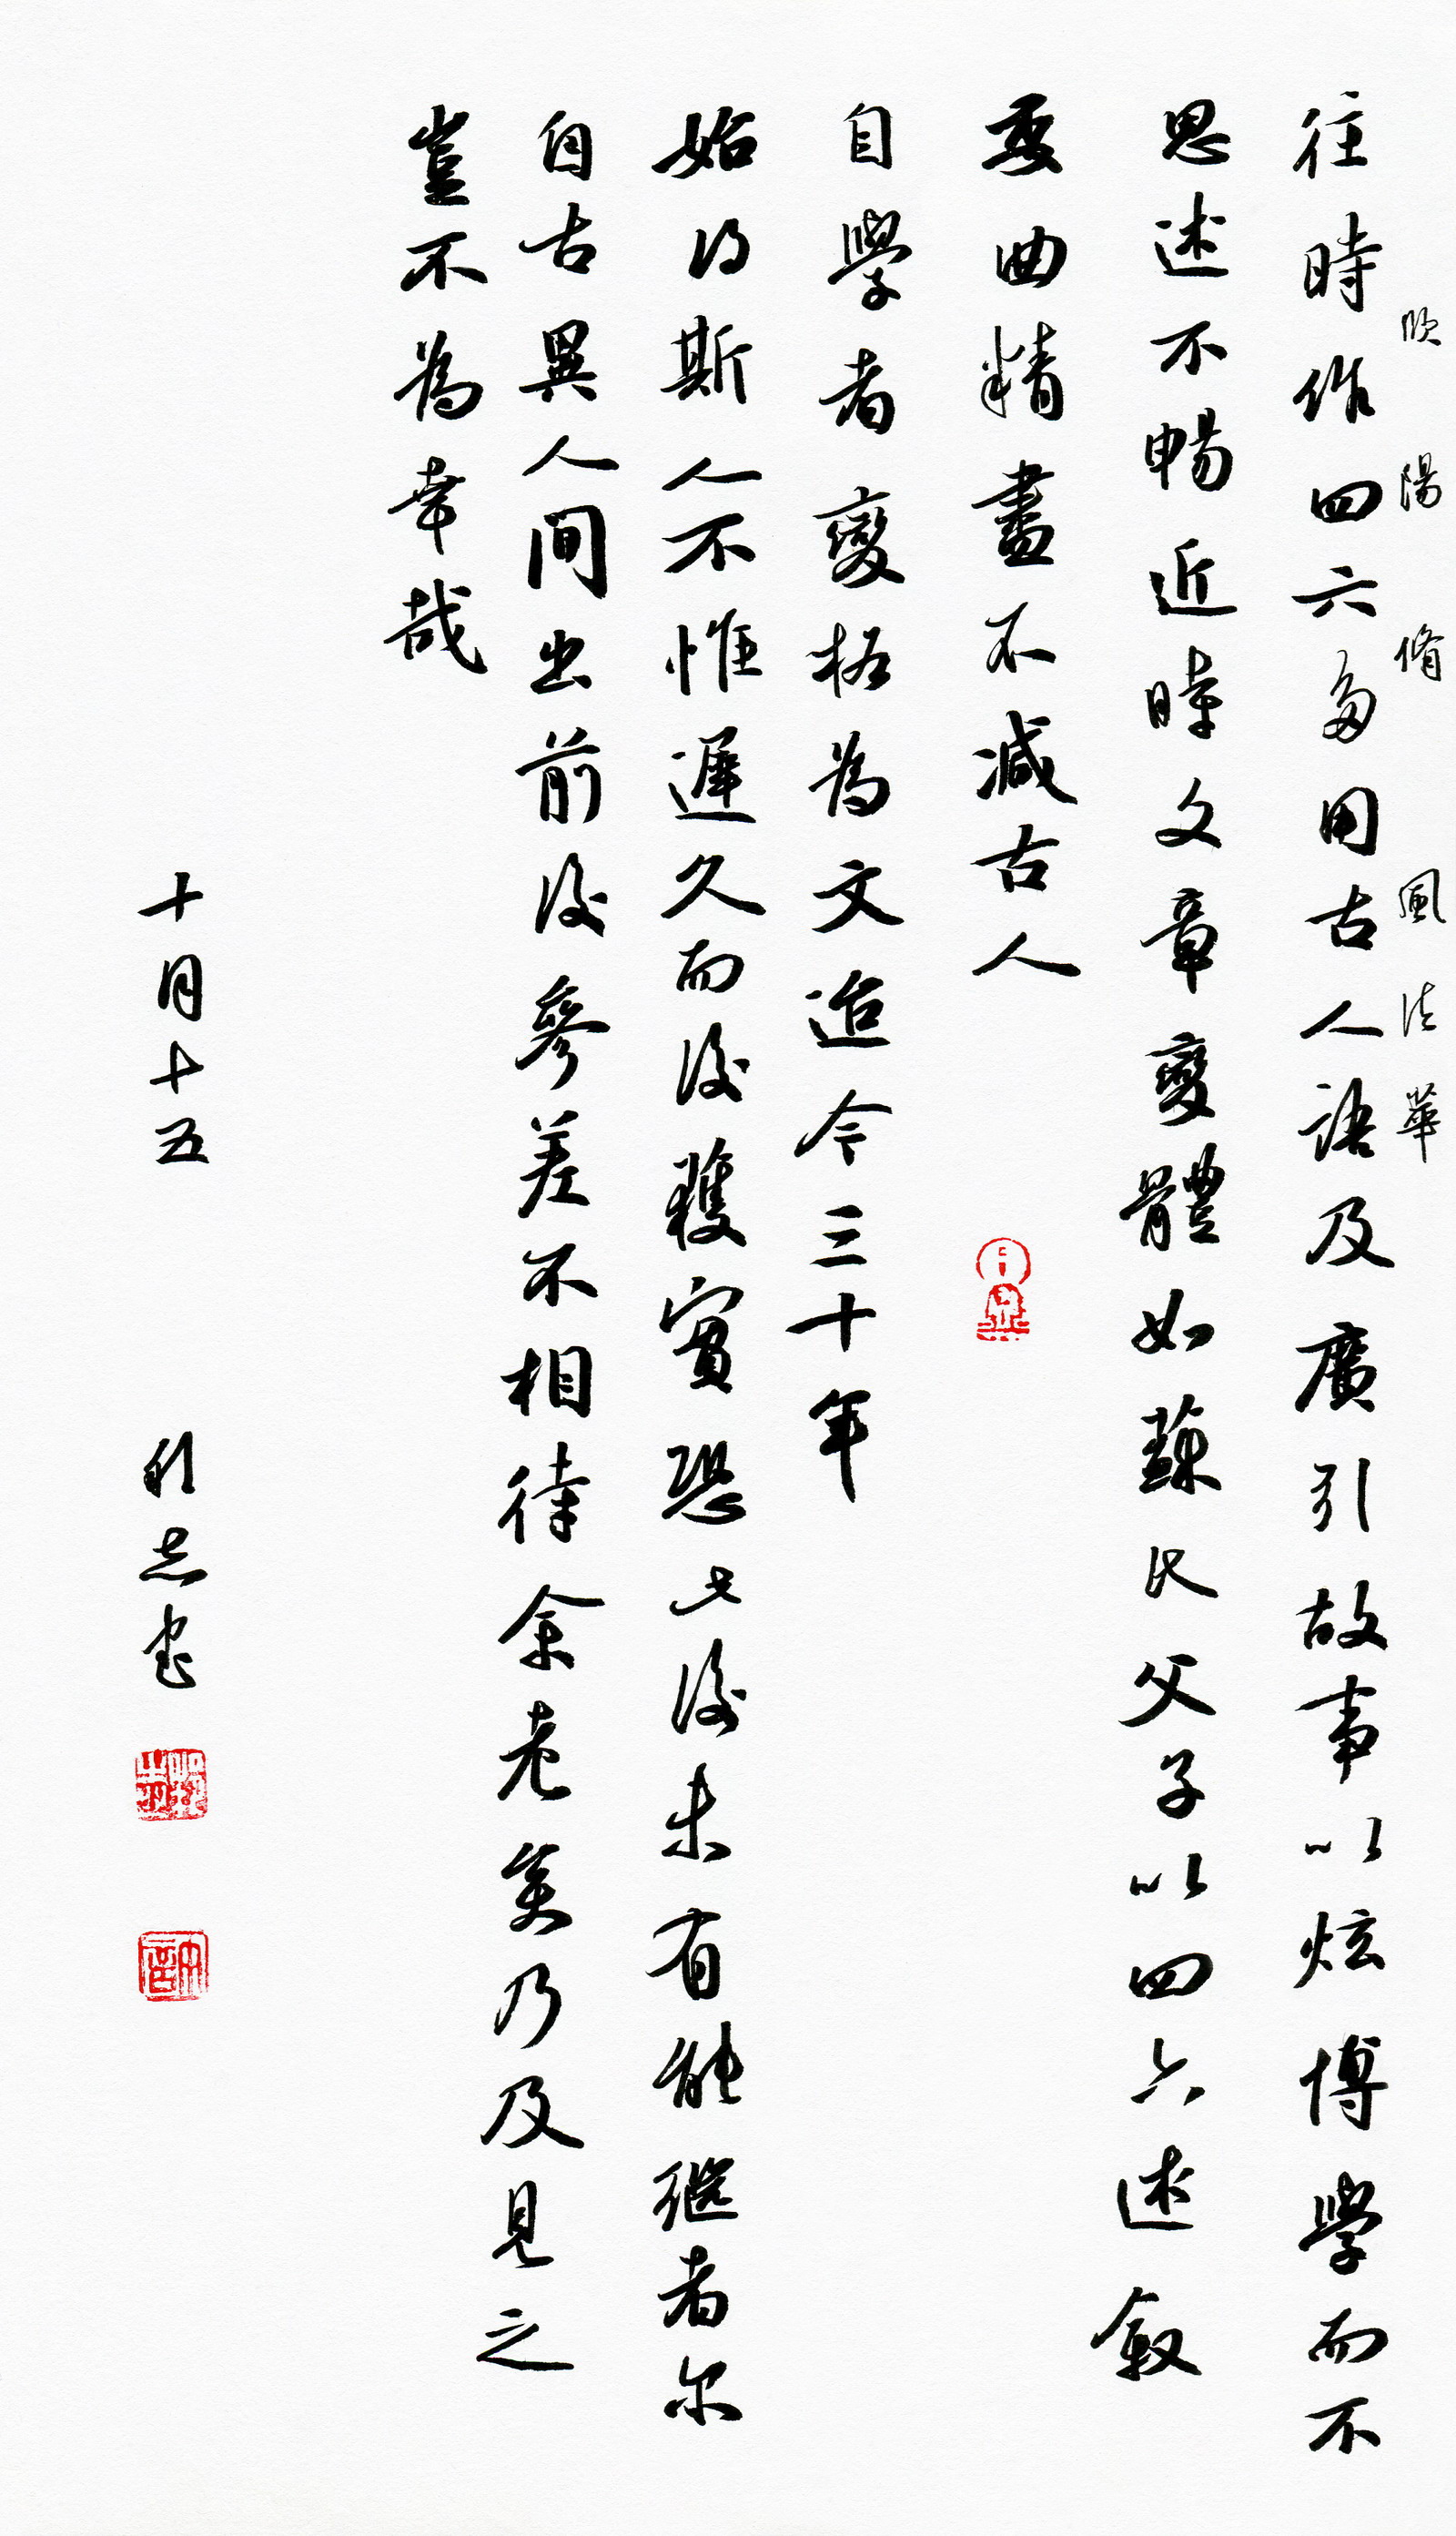 歐陽脩 風法華
往時作四六多用古人語及廣引故事以炫博學而不
思述不暢近時文章變體如蘇氏父子以四六述敘
委曲精盡不減古人
自學者變格為文迨今三十年
始得斯人不惟遲久而後獲實恐此後未有能繼者尔
自古異人間出前後參差不相待余老矣乃及見之
豈不為幸哉
十月十五